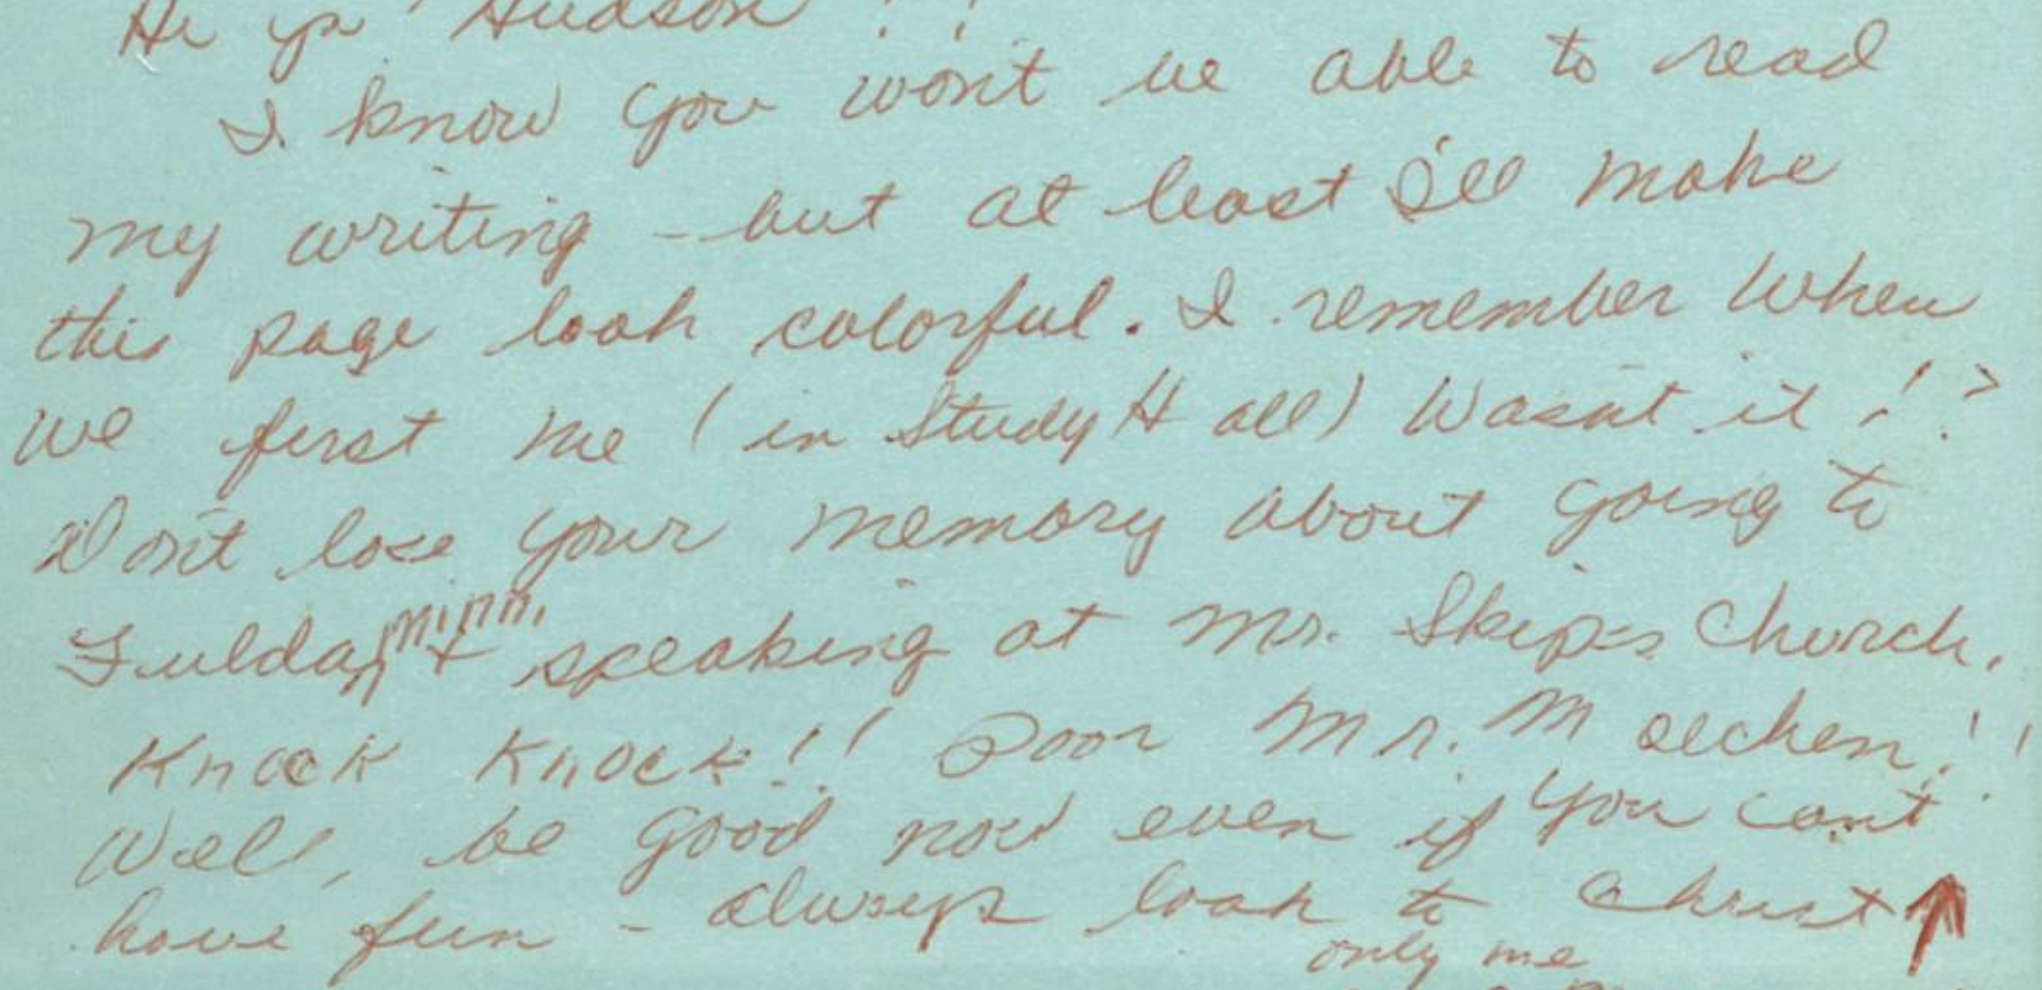 Hi ya Hudson!!
I know you won't be able to read
my writing - but at least I'll make
this page look colorful. I remember when
we first me (in Study Hall) Wasn't it!?
Don't lose your memory about going to
Fulda, Minn. + speaking at Mr. Skip's Church.
Knock Knock!! Poor Mr. Maechen!!
Well, be good now even if you can't
have fun - always look to Christ ↑
only me